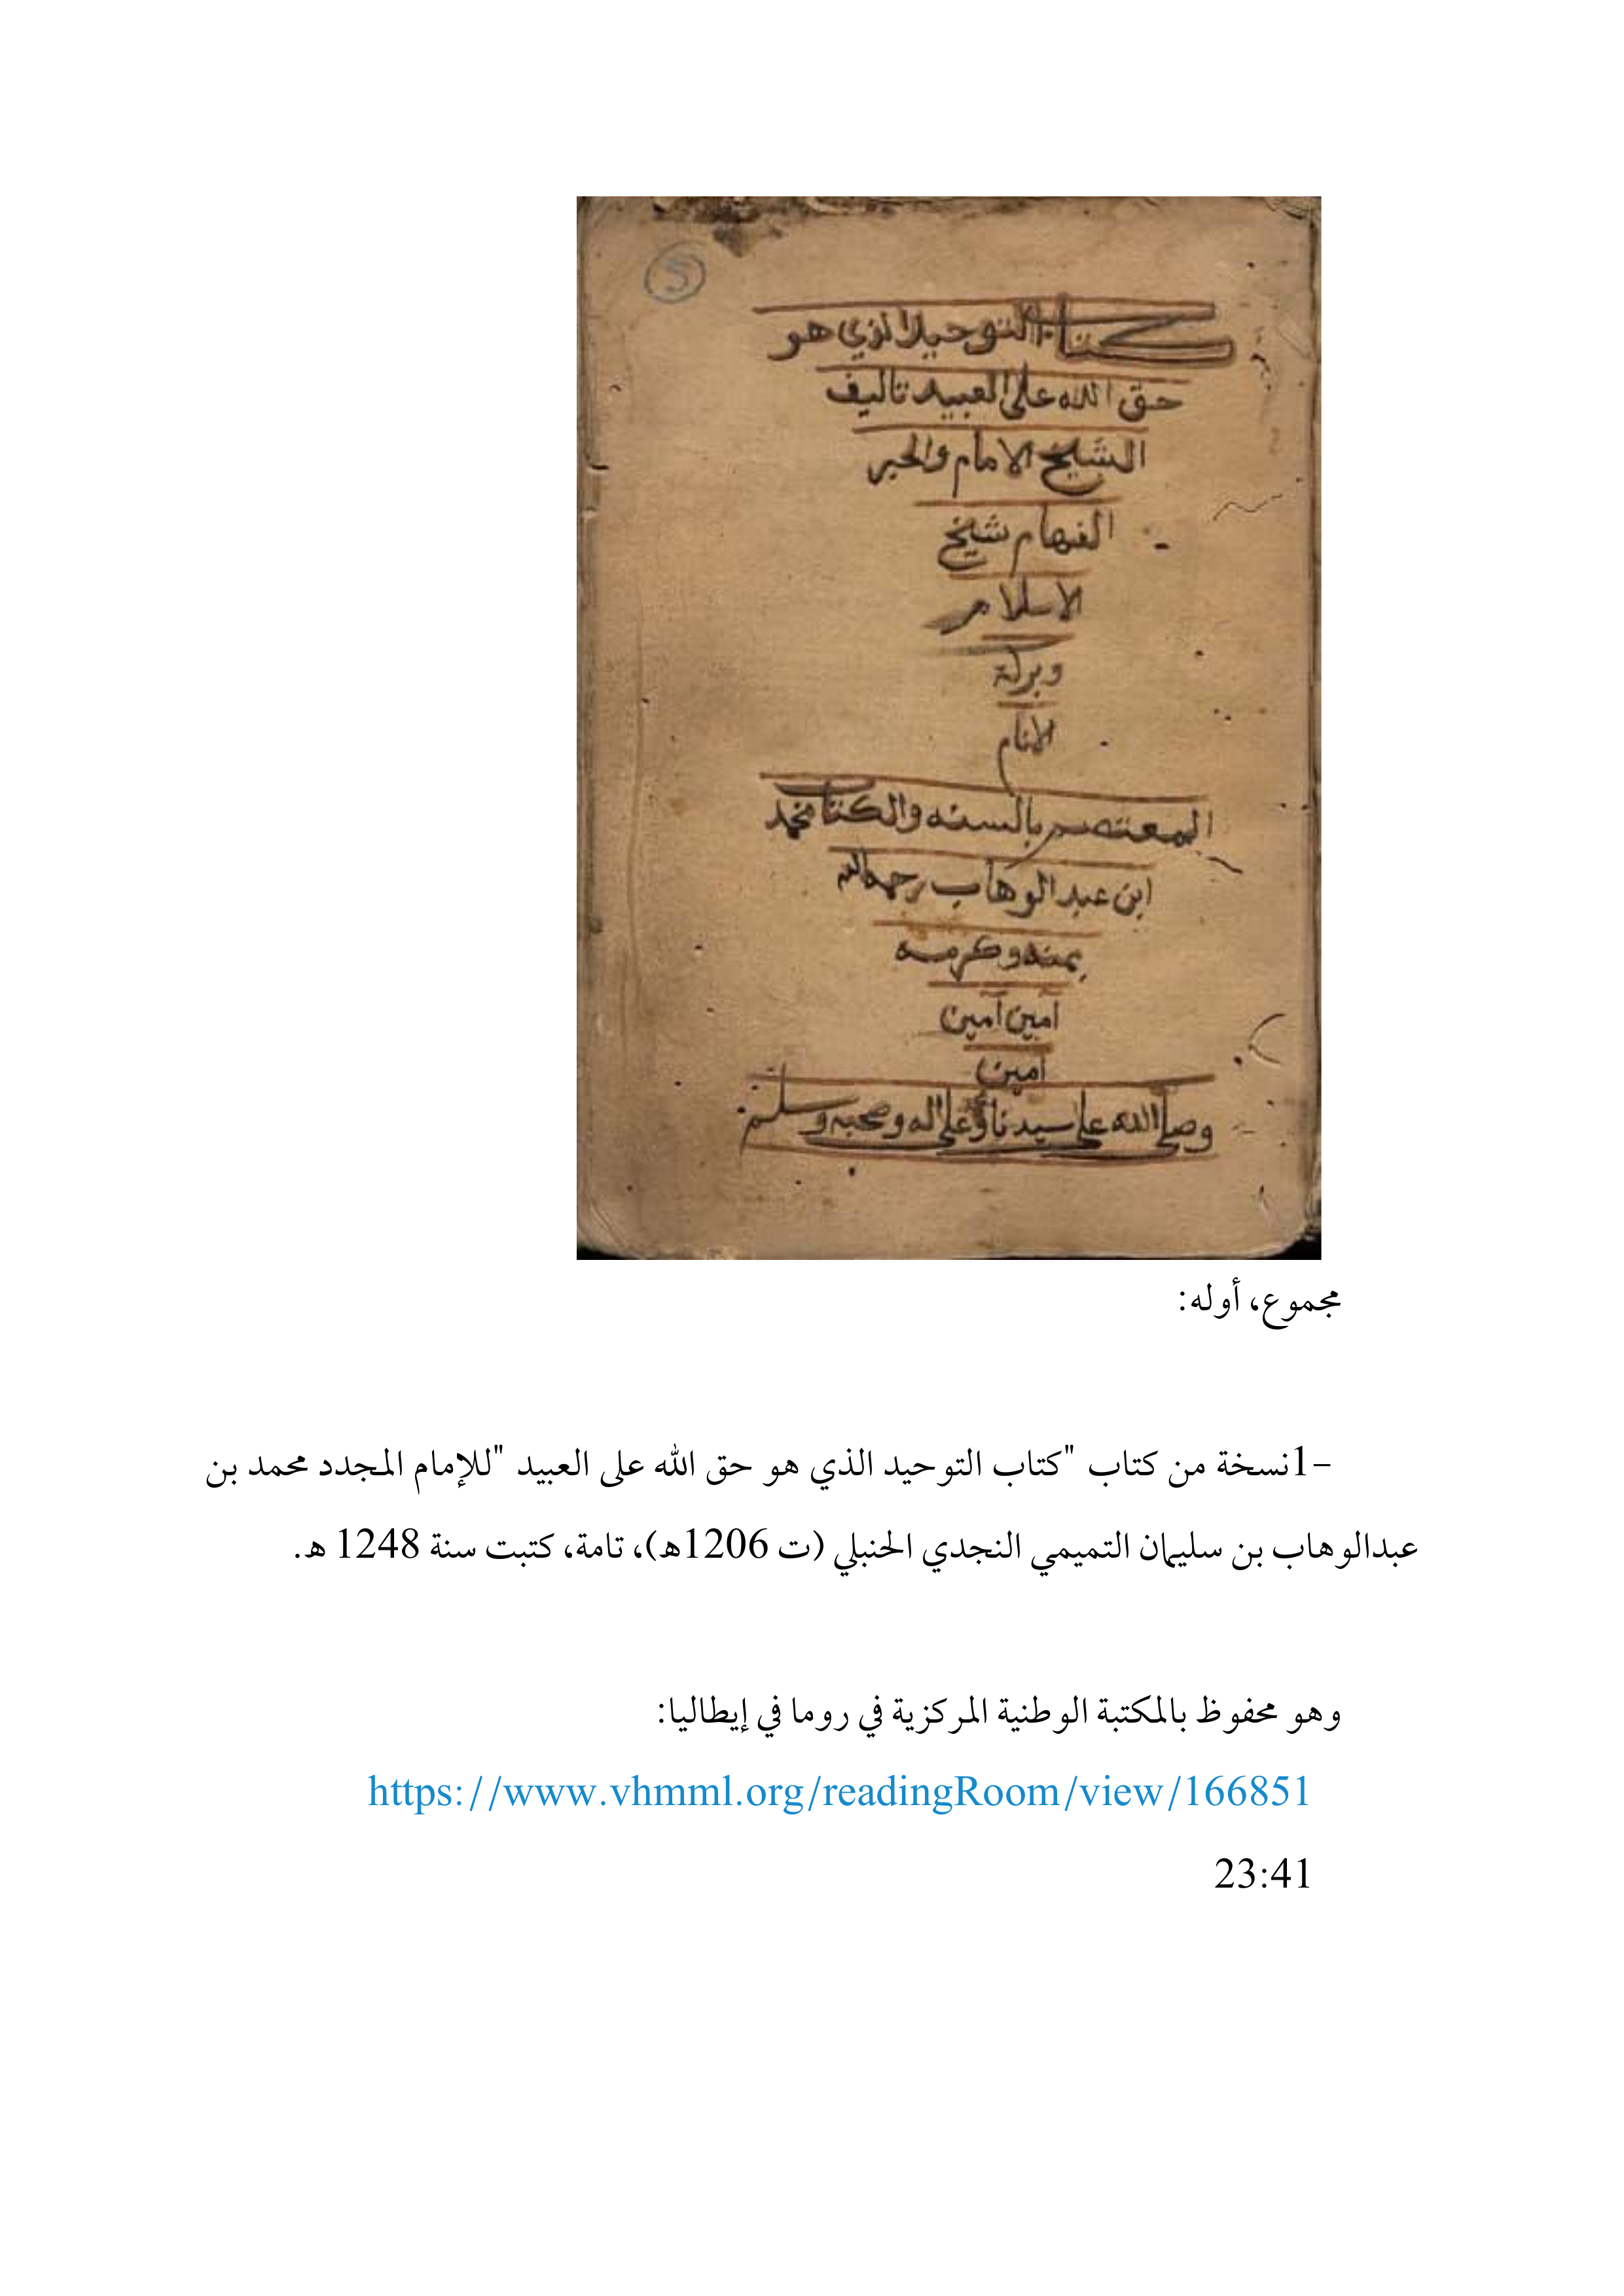 5
كتاب التوحيد الذي هو
حق الله على العبيد تاليف
الشيخ الامام والحبر
الفهام شيخ
الاسلام
وبركة
الانام
المعتصم بالسنه والكتاب محمد
ابن عبد الوهاب رحمه الله
بمنه وكرمه
آمين آمين
آمين
وصلى الله على سيدنا وعلى اله وصحبه وسلم
مجموع، أوله:
1-نسخة من كتاب "كتاب التوحيد الذي هو حق الله على العبيد "للإمام المجدد محمد بن
عبدالوهاب بن سليمان التميمي النجدي الحنبلي (ت 1206هـ)، تامة، كتبت سنة 1248 هـ.
وهو محفوظ بالمكتبة الوطنية المركزية في روما في إيطاليا:
https://www.vhmml.org/readingRoom/view/166851
23:41